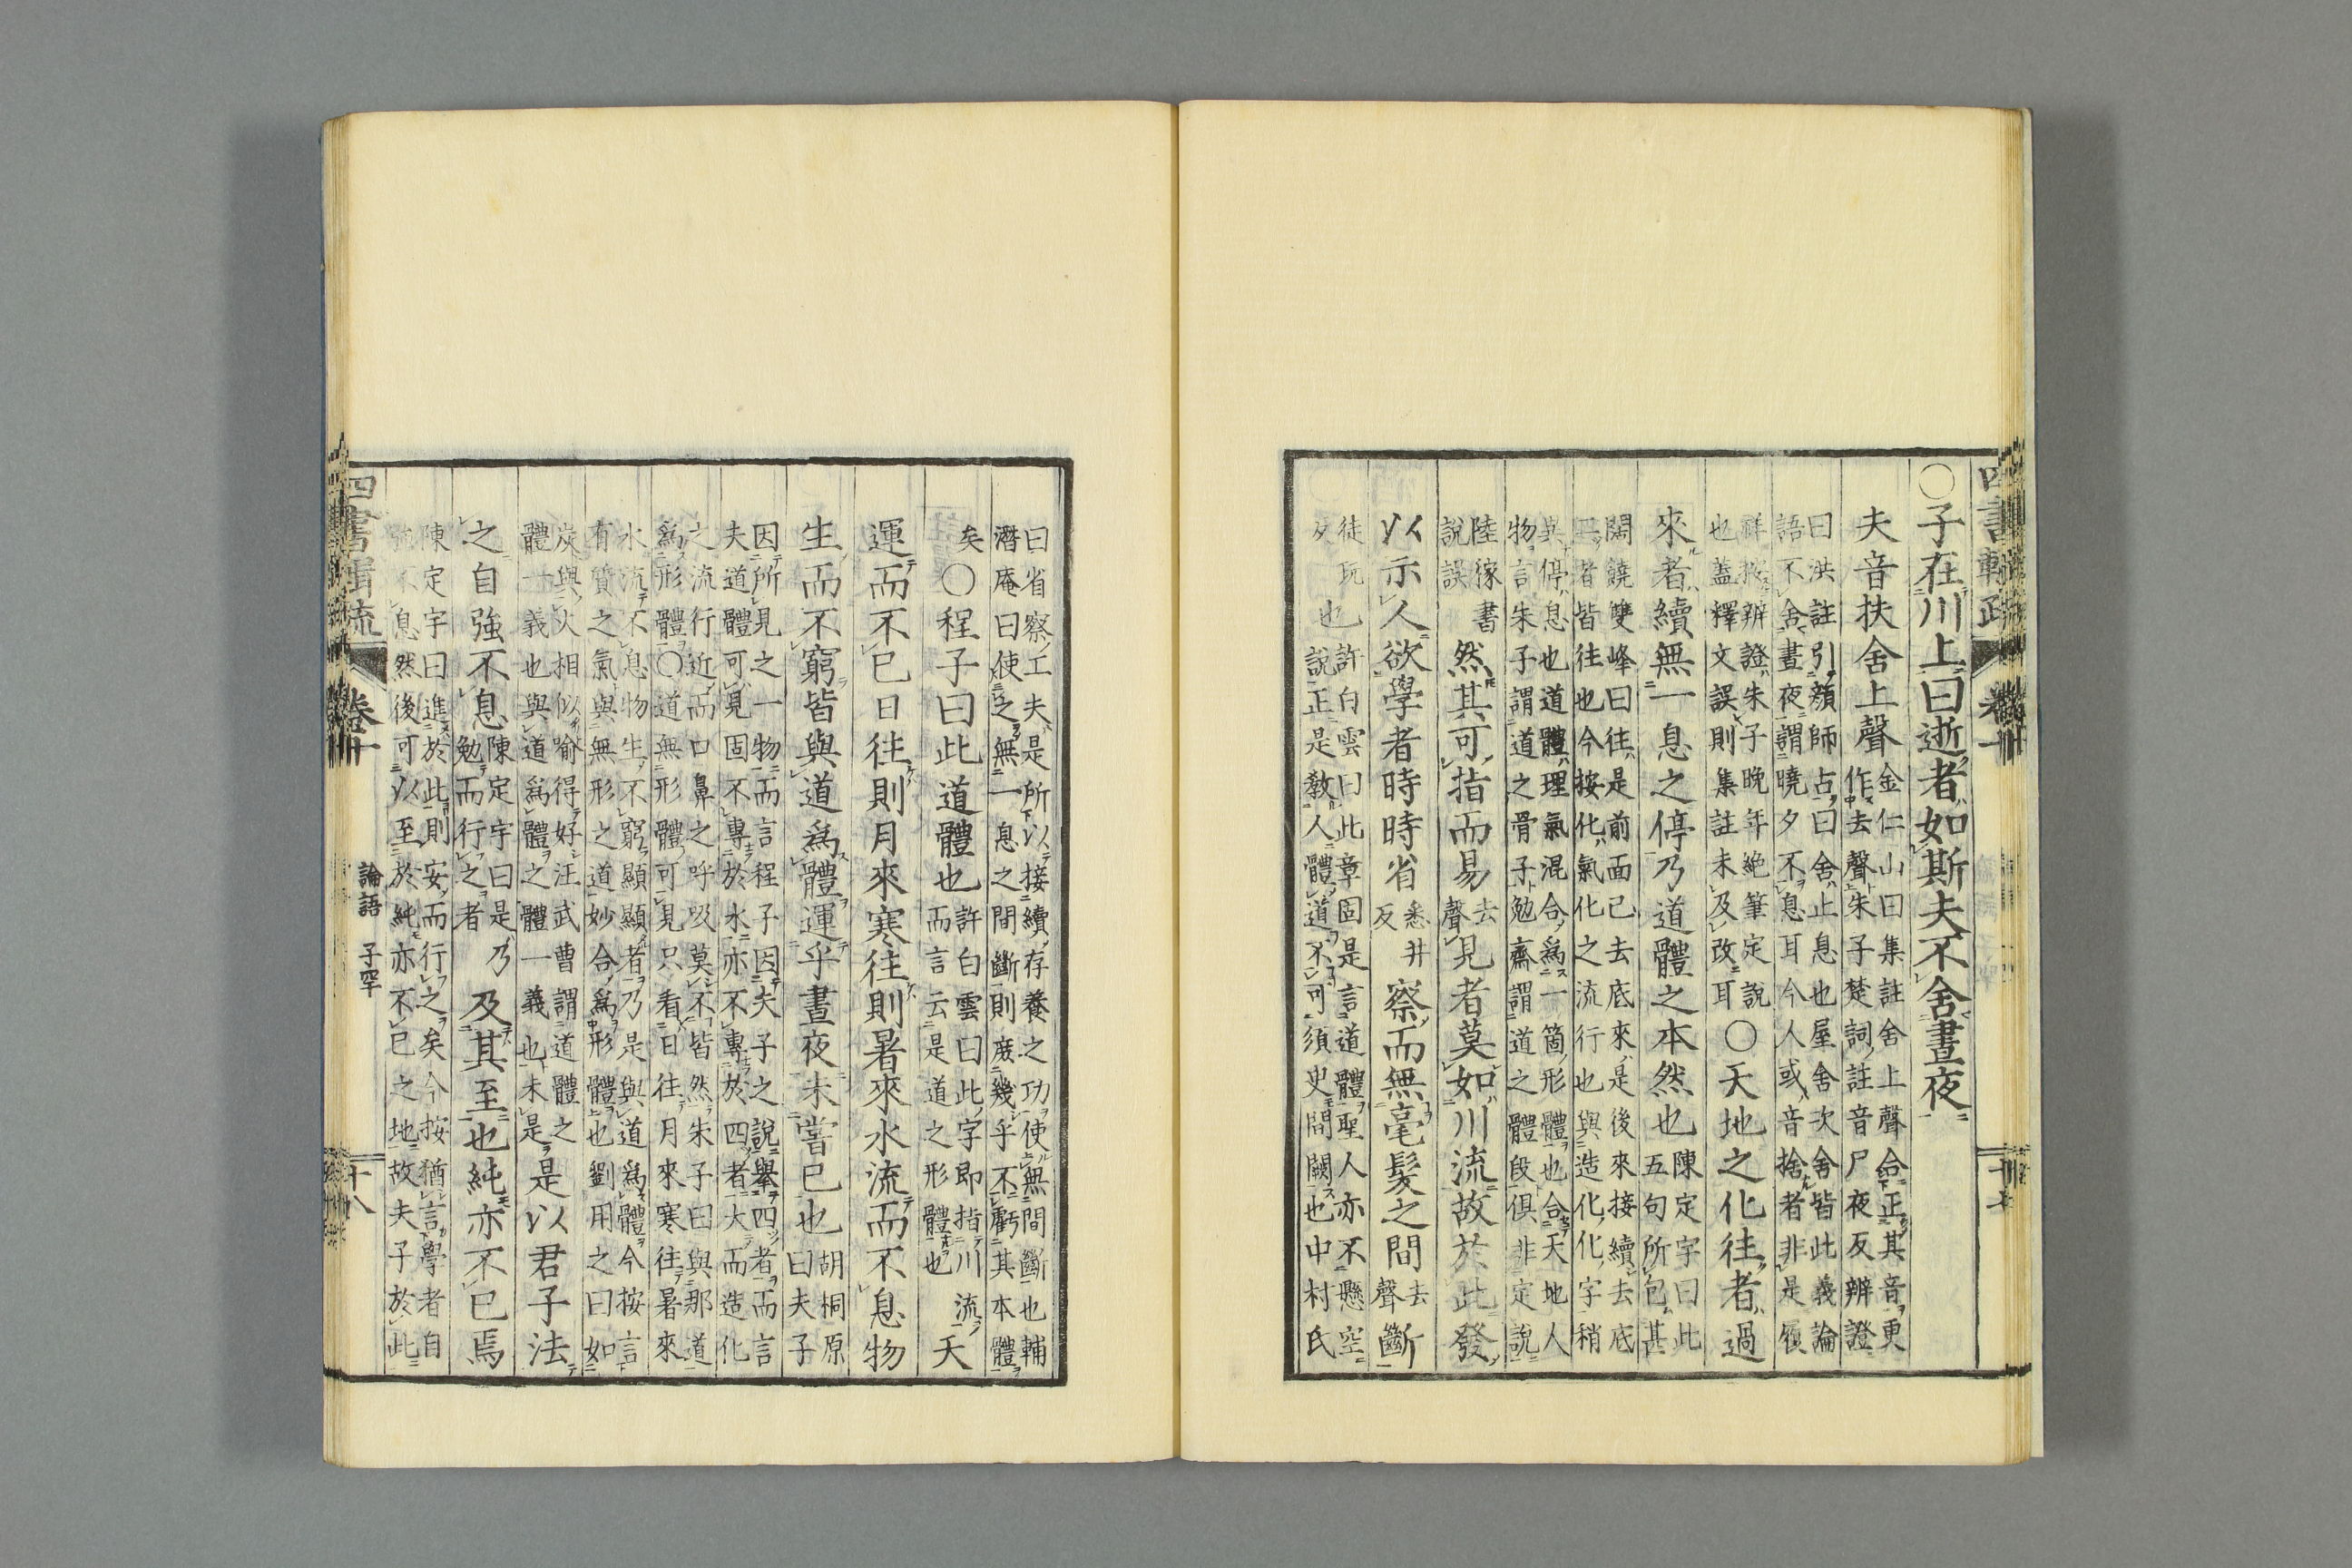 〇子在川上曰逝者如斯夫不舍晝夜
夫音扶舍上聲
金仁山曰集註舍上聲合正其音更
作去聲朱子楚詞註音尸夜反辨證
曰洪註引顔師古曰舍止息也屋舍次舍皆此義論
語不舍晝夜謂曉夕不息耳今人或音捨者非是頋
祥按辨證朱子晩年絶筆定說
也蓋釋文誤則集註未及改耳
〇天地之化往者過
來者續無一息之停乃道體之本然也
陳定宇曰此
五句所包甚
闊饒雙峰曰往是前面已去底來是後來接續去底
二者皆往也今按化氣化之流行也與造化化字稍
異停息也道體理氣混合爲一箇形體也合天地人
物言朱子謂道之骨子勉齋謂道之體段俱非定說
陸稼書
說誤
然其可指而易
去
聲
見者莫如川流故於此發
以示人欲學者時時省
悉井
反
察而無毫髮之間
去
聲
斷
徒玩
反
也
許白雲曰此章固是言道體聖人亦不懸空
說正是敎人體道不可須臾間闕也中村氏
曰省察工夫是所以接續存養之功使無間斷也輔
潛庵曰使之無一息之間斷則庶幾乎不虧其本體
矣〇程子曰此道體也
許白雲曰此字即指川流
而言云是道之形體也
天
運而不已日往則月來寒往則暑來水流而不息物
生而不窮皆與道爲體運乎晝夜未嘗已也
胡桐原
曰夫子
因所見之一物而言程子因夫子之說舉四者而言
夫道體可見固不專於水亦不專於四者大而造化
之流行近而口鼻之呼吸莫不皆然朱子曰與那道
爲形體〇道無形體可見只看日往月來寒往暑來
水流不息物生不窮顯顯者乃是與道爲體今按言
有質之氣與無形之道妙合爲形體也劉用之曰如
炭與火相似喻得好汪武曹謂道體之
體一義也與道爲體之體一義也未是
是以君子法
之自強不息
陳定宇曰是乃
勉而行之者
及其至也純亦不已焉
陳定宇曰進於此則安而行之矣今按猶言學者自
強不息然後可以至於純亦不已之地故夫子於此
四書輯疏
卷十
論語 子罕
十八